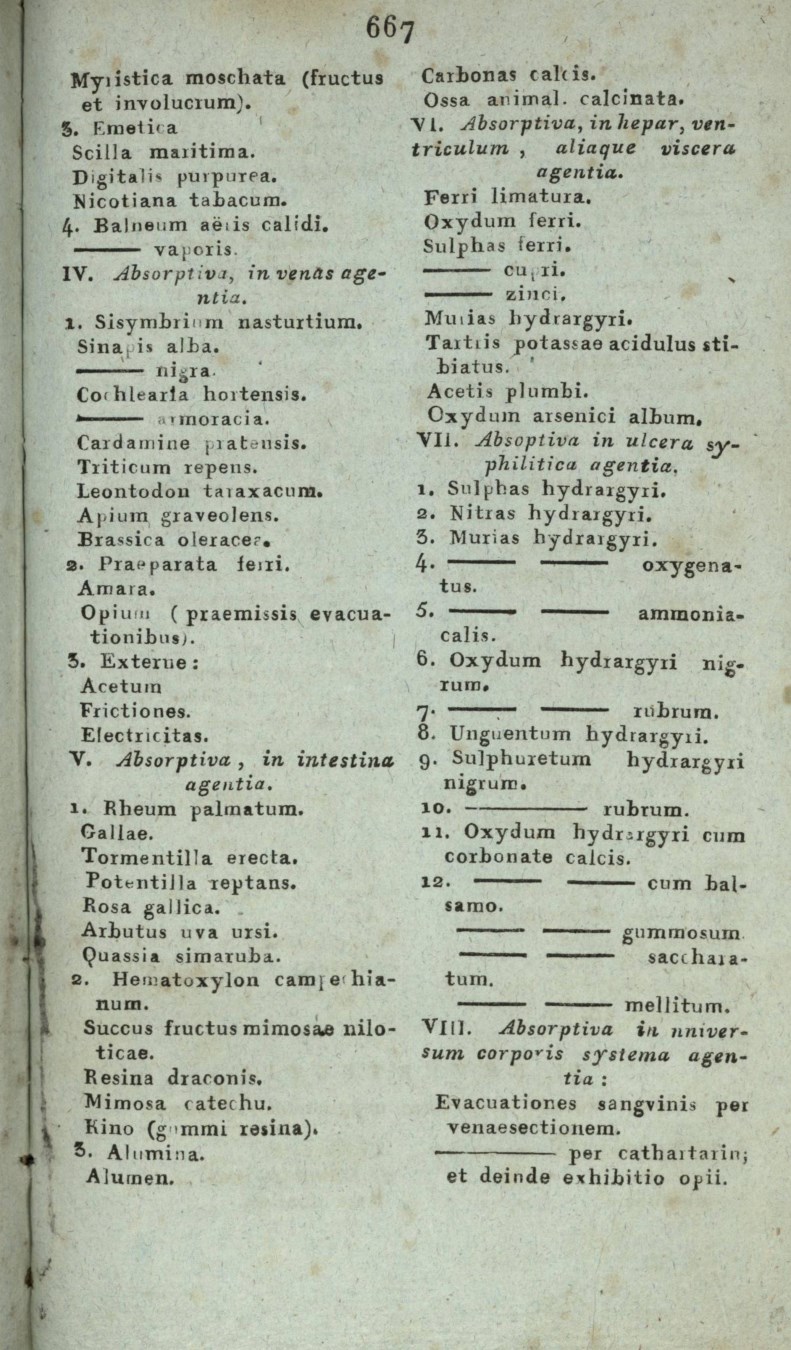 667
Myristica moschata (fructus
et involucrum).
3. Emetica
Scilla maritima.
Digitalis purpurea.
Nicotiana tabacum.
4. Balneum aëris calidi.
——— vaporis.
IV. Absorptiva, in venas age-
ntia.
1. Sisymbrium nasturtium.
Sinapis alba.
——— nigra.
Cochlearia hortensis.
——— armoracia.
Cardamine pratensis.
Triticum repens.
Leontodon taraxacum.
Apium graveolens.
Brassica oleracea.
2. Praeparata ferri.
Amara.
Opium ( praemissis evacua-
tionibus).
3. Externe :
Acetum
Frictiones.
Electricitas.
V. Absorptiva , in intestina
agentia.
1. Rheum palmatum.
Gallae.
Tormentilla erecta.
Potentilla reptans.
Rosa gallica.
Arbutus uva ursi.
Quassia simaruba.
2. Hematoxylon campechia-
num.
Succus fructus mimosae nilo-
ticae.
Resina draconis.
Mimosa catechu.
Kino (gummi resina).
3. Alumina.
Alumen.
Carbonas calcis.
Ossa animal. calcinata.
VI. Absorptiva, in hepar, ven-
triculum , aliaque viscera
agentia.
Ferri limatura.
Oxydum ferri.
Sulphas ferri.
——— cupri.
——— zinci.
Murias hydrargyri.
Tartris potassae acidulus sti-
biatus.
Acetis plumbi.
Oxydum arsenici album.
VII. Absoptiva in ulcera sy-
philitica agentia.
1. Sulphas hydrargyri.
2. Nitras hydrargyri.
3. Murias hydrargyri.
4. ——— ——— oxygena-
tus.
5. ——— ——— ammonia-
calis.
6. Oxydum hydrargyri nig-
rum.
7. ——— ——— rubrum.
8. Unguentum hydrargyri.
9. Sulphuretum hydrargyri
nigrum.
10. ————— rubrum.
11. Oxydum hydrargyri cum
corbonate calcis.
12. ——— ——— cum bal-
samo.
——— ——— gummosum
——— ——— sacchara-
tum.
——— ——— mellitum.
VIII. Absorptiva in univer-
sum corporis systema agen-
tia :
Evacuationes sangvinis per
venaesectionem.
————— per cathartarin;
et deinde exhibitio opii.